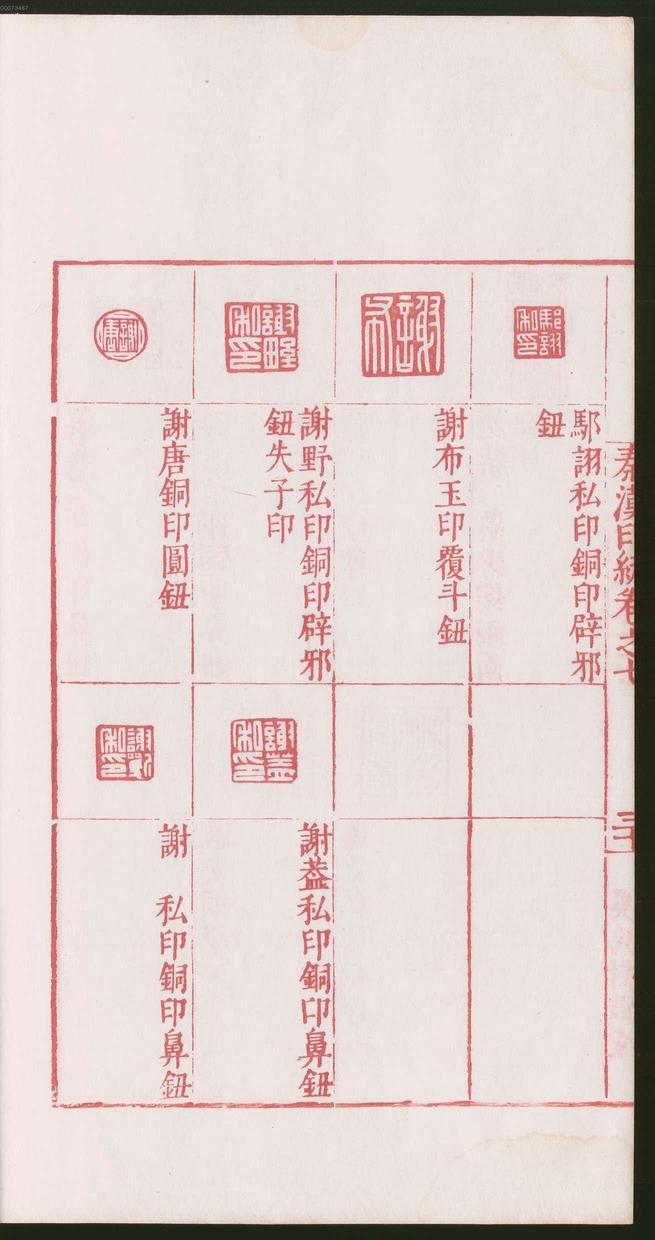 00073467
秦漢印統卷之七
三十
䣕詡私印銅印辟邪
鈕
謝布玉印覆斗鈕
謝野私印銅印辟邪
鈕失子印
謝唐銅印圓鈕
謝葢私印銅印鼻鈕
謝　私印銅印鼻鈕